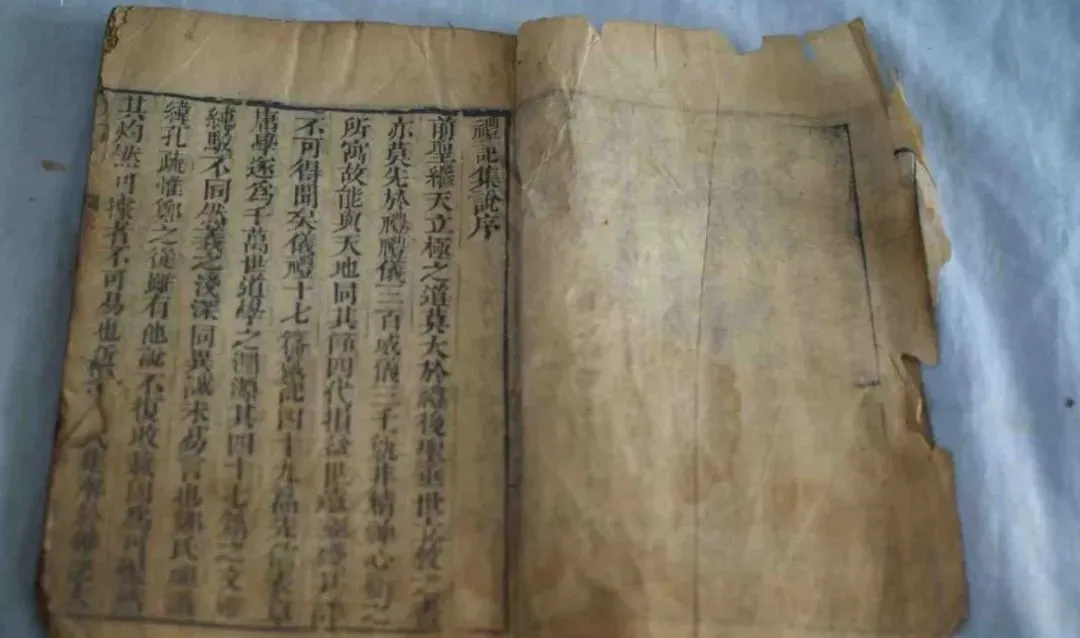 禮記集說序
前聖繼天立極之道莫大於禮後聖垂世立教之書
亦莫先於禮禮儀三百威儀三千孰非精神心術之
所寓故能與天地同其節四代損益世遠經亡其
不可得聞矣儀禮十七篇戴記四十九篇先儒表章
庸學遂爲千萬世道學之淵源其四十七篇之文雖
純駁不同然義之淺深同異誠未易言也鄭氏祖讖
緯孔疏惟鄭之從雖有他說不復收載固爲可恨然
其灼然可據者不可易也近世 氏集解於雜記大